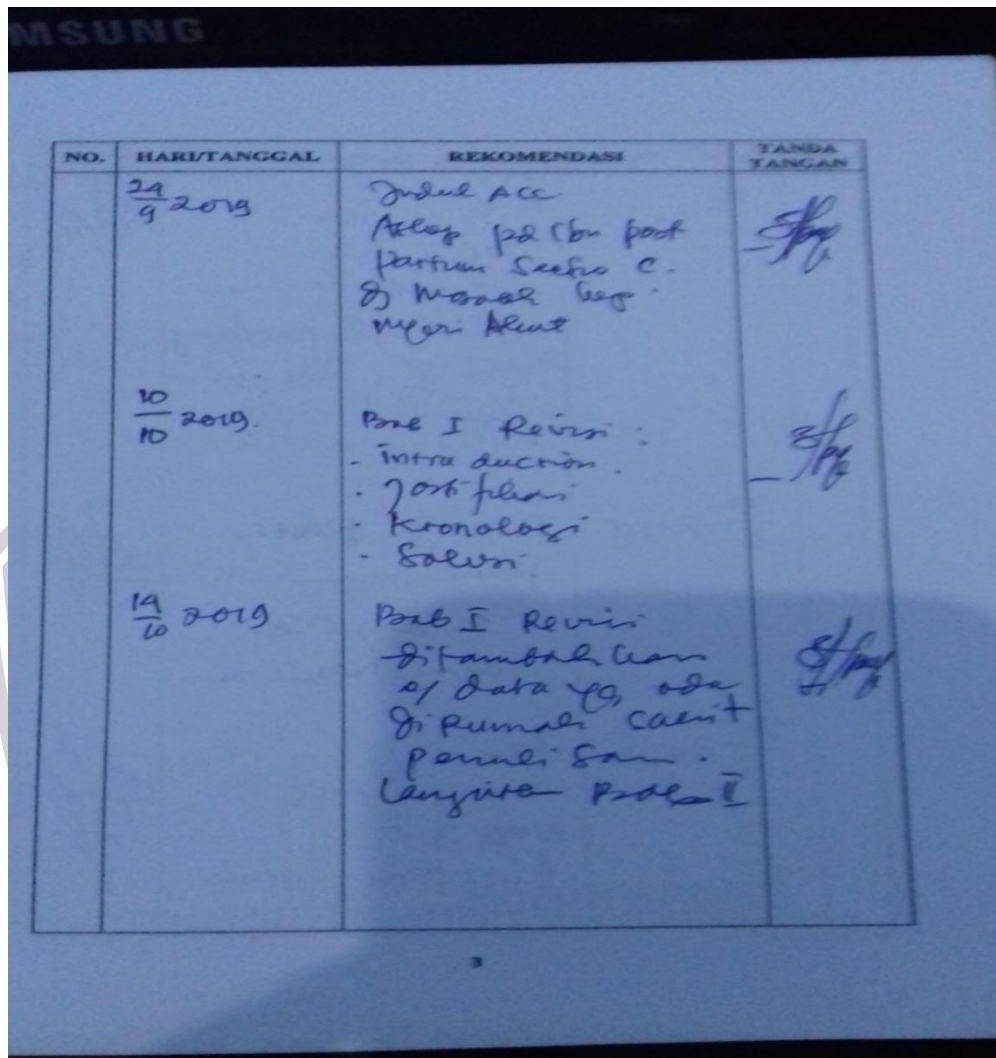 MSUNG
NO. HARI/TANGGAL REKOMENDASI TANDA TANGAN
24/9 2019 Judul ACC
Askep pd Ibu post
partum Sectio C.
dg Masalah kep.
nyeri Akut
10/10 2019. Bab I Revisi :
- introduction .
- Justifikasi
- Kronologi
- Solusi
14/10 2019 Bab I Revisi
ditambahkan
data yg ada
di Rumah Sakit
penulisan .
Lanjutkan Bab II
3